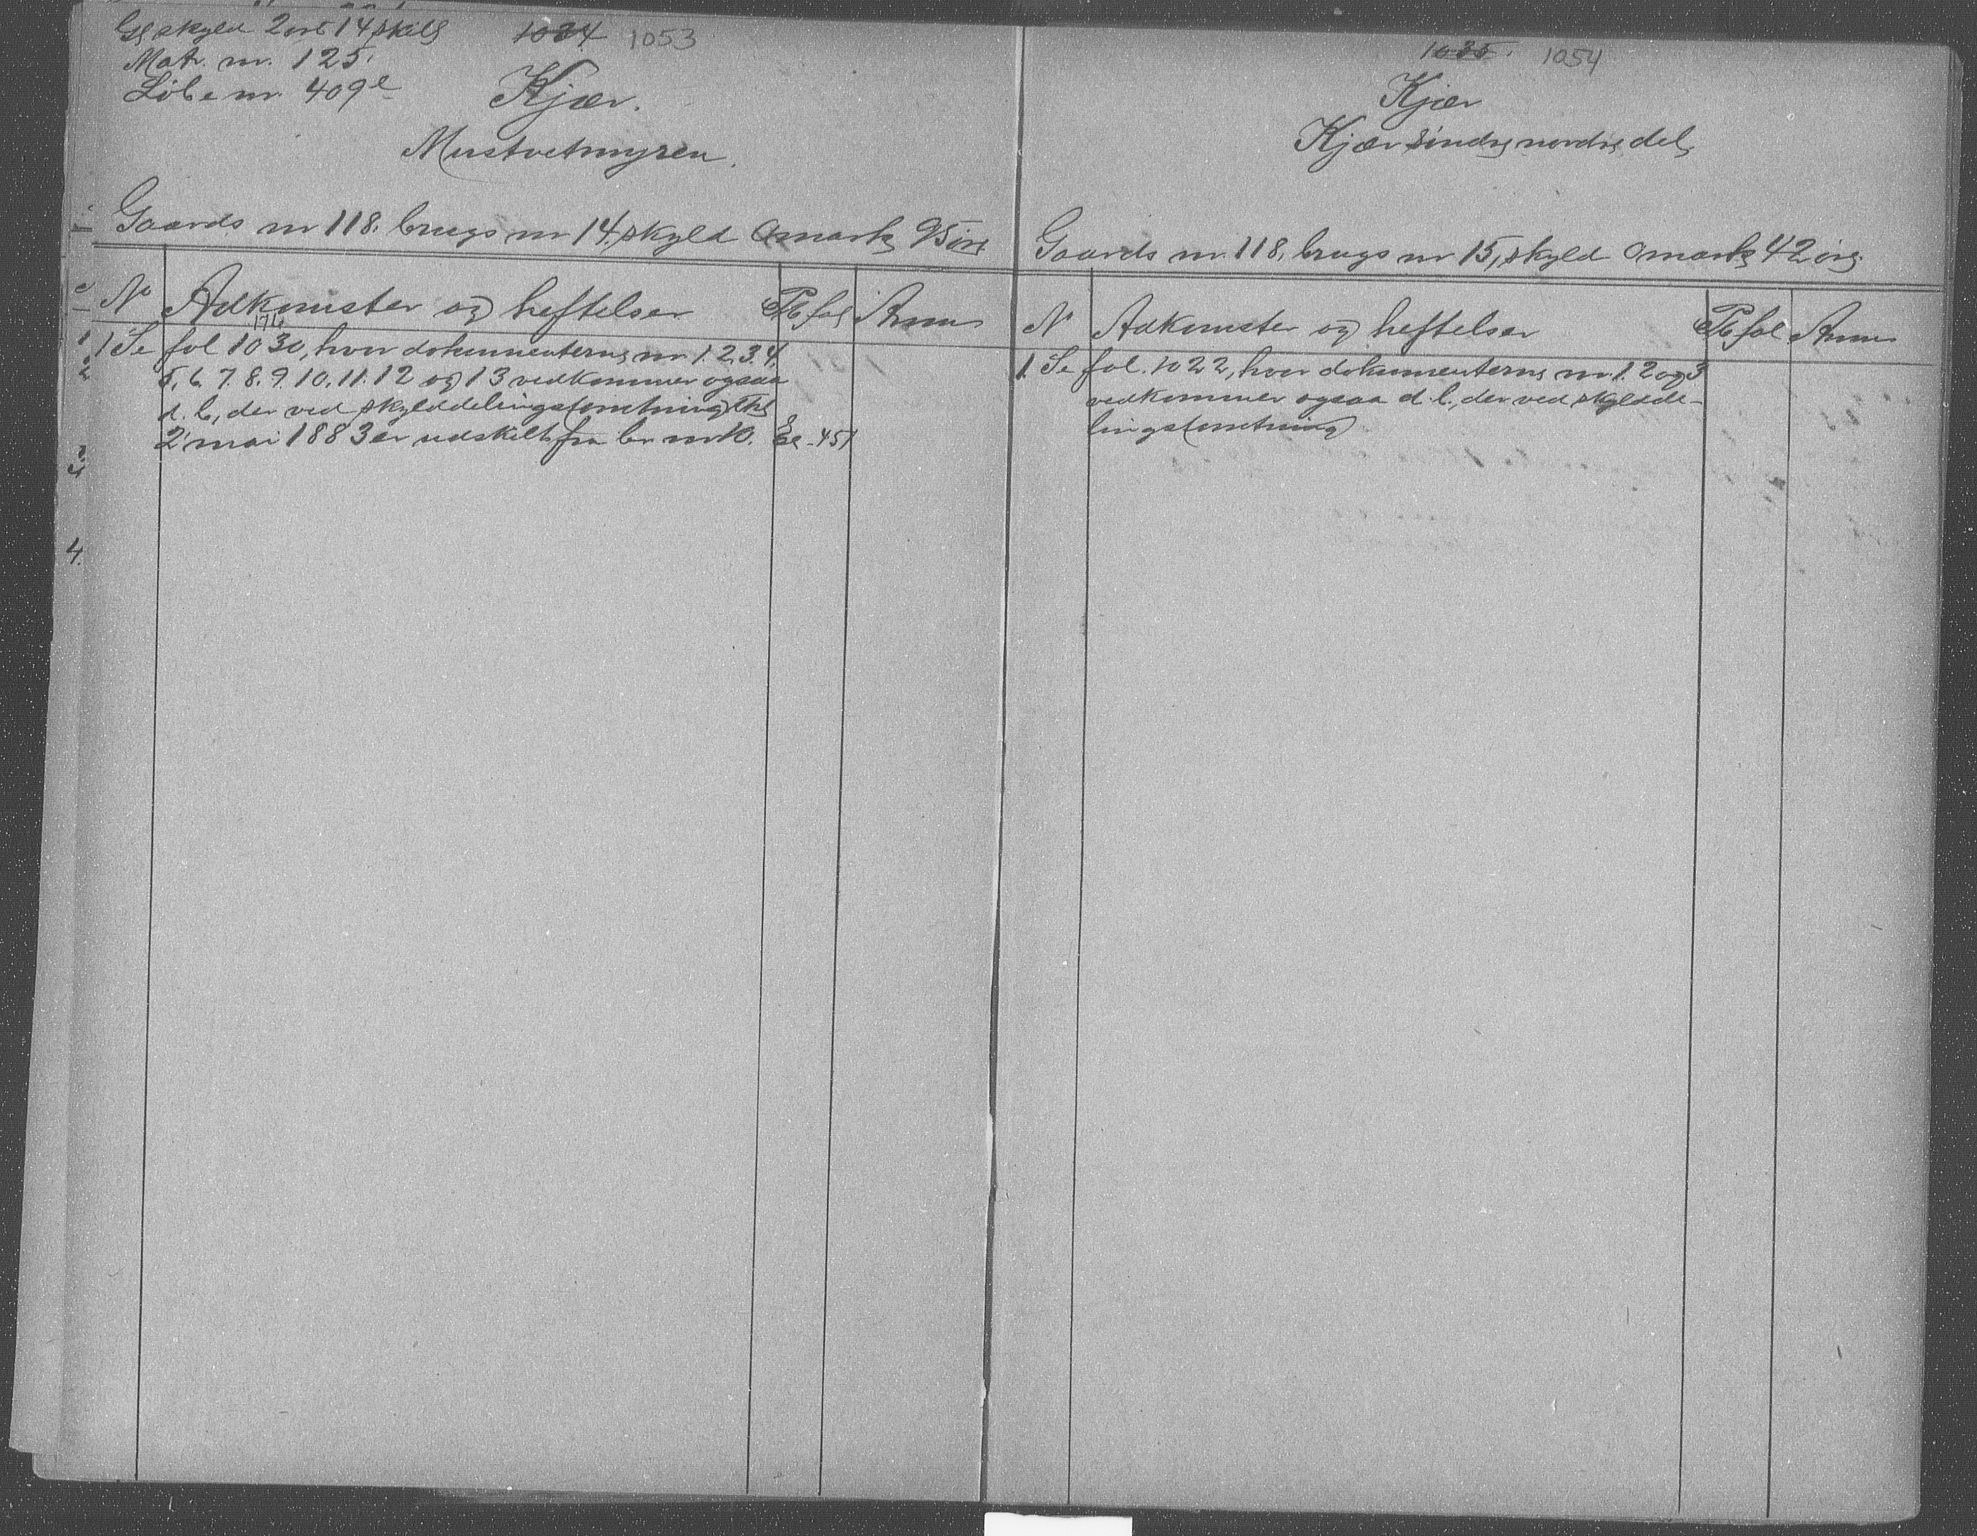 Gl skyld 2 ort 14 skill 1034 1053
Matr. nr. 125.
Löbe nr 409e
Kjær.
Mustvetmyren.
Gaards nr 118, brugs nr 14, skyld 0 mark 95 öre
No Adkomster og heftelser Pb fol Anm
174
1 Se fol 1030, hvor dokumenterne nr 1. 2. 3. 4.
5. 6. 7. 8. 9. 10. 11. 12 og 13 vedkommer ogsaa
d. b., der ved skylddelingsforretning thl
2 mai 1883 er udskilt fra br nr 10. 451
1035. 1054
Kjær
Kjær söndre nordre del
Gaards nr 118, brugs nr 15, skyld 0 mark 42 öre
N Adkomster og heftelser Pb fol Anm
1. Se fol. 1022, hvor dokumenterne nr 1. 2 og 3
vedkommer ogsaa d. b., der ved skyldde-
lingsforretning
4.